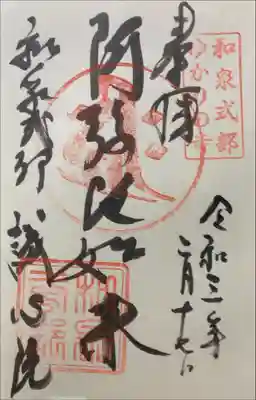 和泉式部
ゆかりの寺
奉拝
令和三年
二月十七日
阿弥陀如来
和泉式部
誠心院